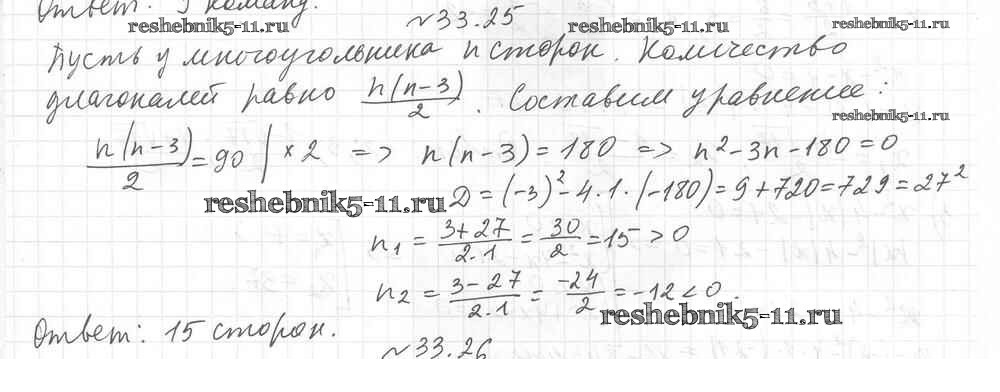 Ответ: 9 команд.
№33.25
reshebnik5-11.ru reshebnik5-11.ru reshebnik5-11.ru
Пусть у многоугольника n сторон. Количество
диагоналей равно n(n-3)/2. Составим уравнение:
reshebnik5-11.ru
n(n-3)/2 = 90 | × 2 => n(n-3) = 180 => n² - 3n - 180 = 0
reshebnik5-11.ru
D = (-3)² - 4·1·(-180) = 9 + 720 = 729 = 27²
n₁ = 3+27/2·1 = 30/2 = 15 > 0
n₂ = 3-27/2·1 = -24/2 = -12 < 0.
reshebnik5-11.ru
Ответ: 15 сторон.
№33.26